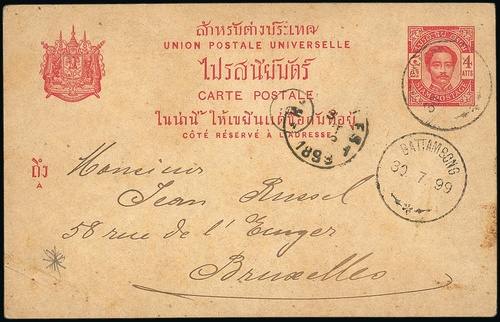 สำหรับต่างประเทศ
UNION POSTALE UNIVERSELLE
ไปรสนียบัตร์
CARTE POSTALE
ในน่านี้ ให้เขียนแต่ชื่อกับที่อยู่
CÔTÉ RÉSERVÉ À L'ADRESSE
4
ATTS
SIAM POSTAGE
BATTAMBONG
30 7 99
ถึง
A
Monsieur
Jean Russel
58 rue de l'
Bruxelles